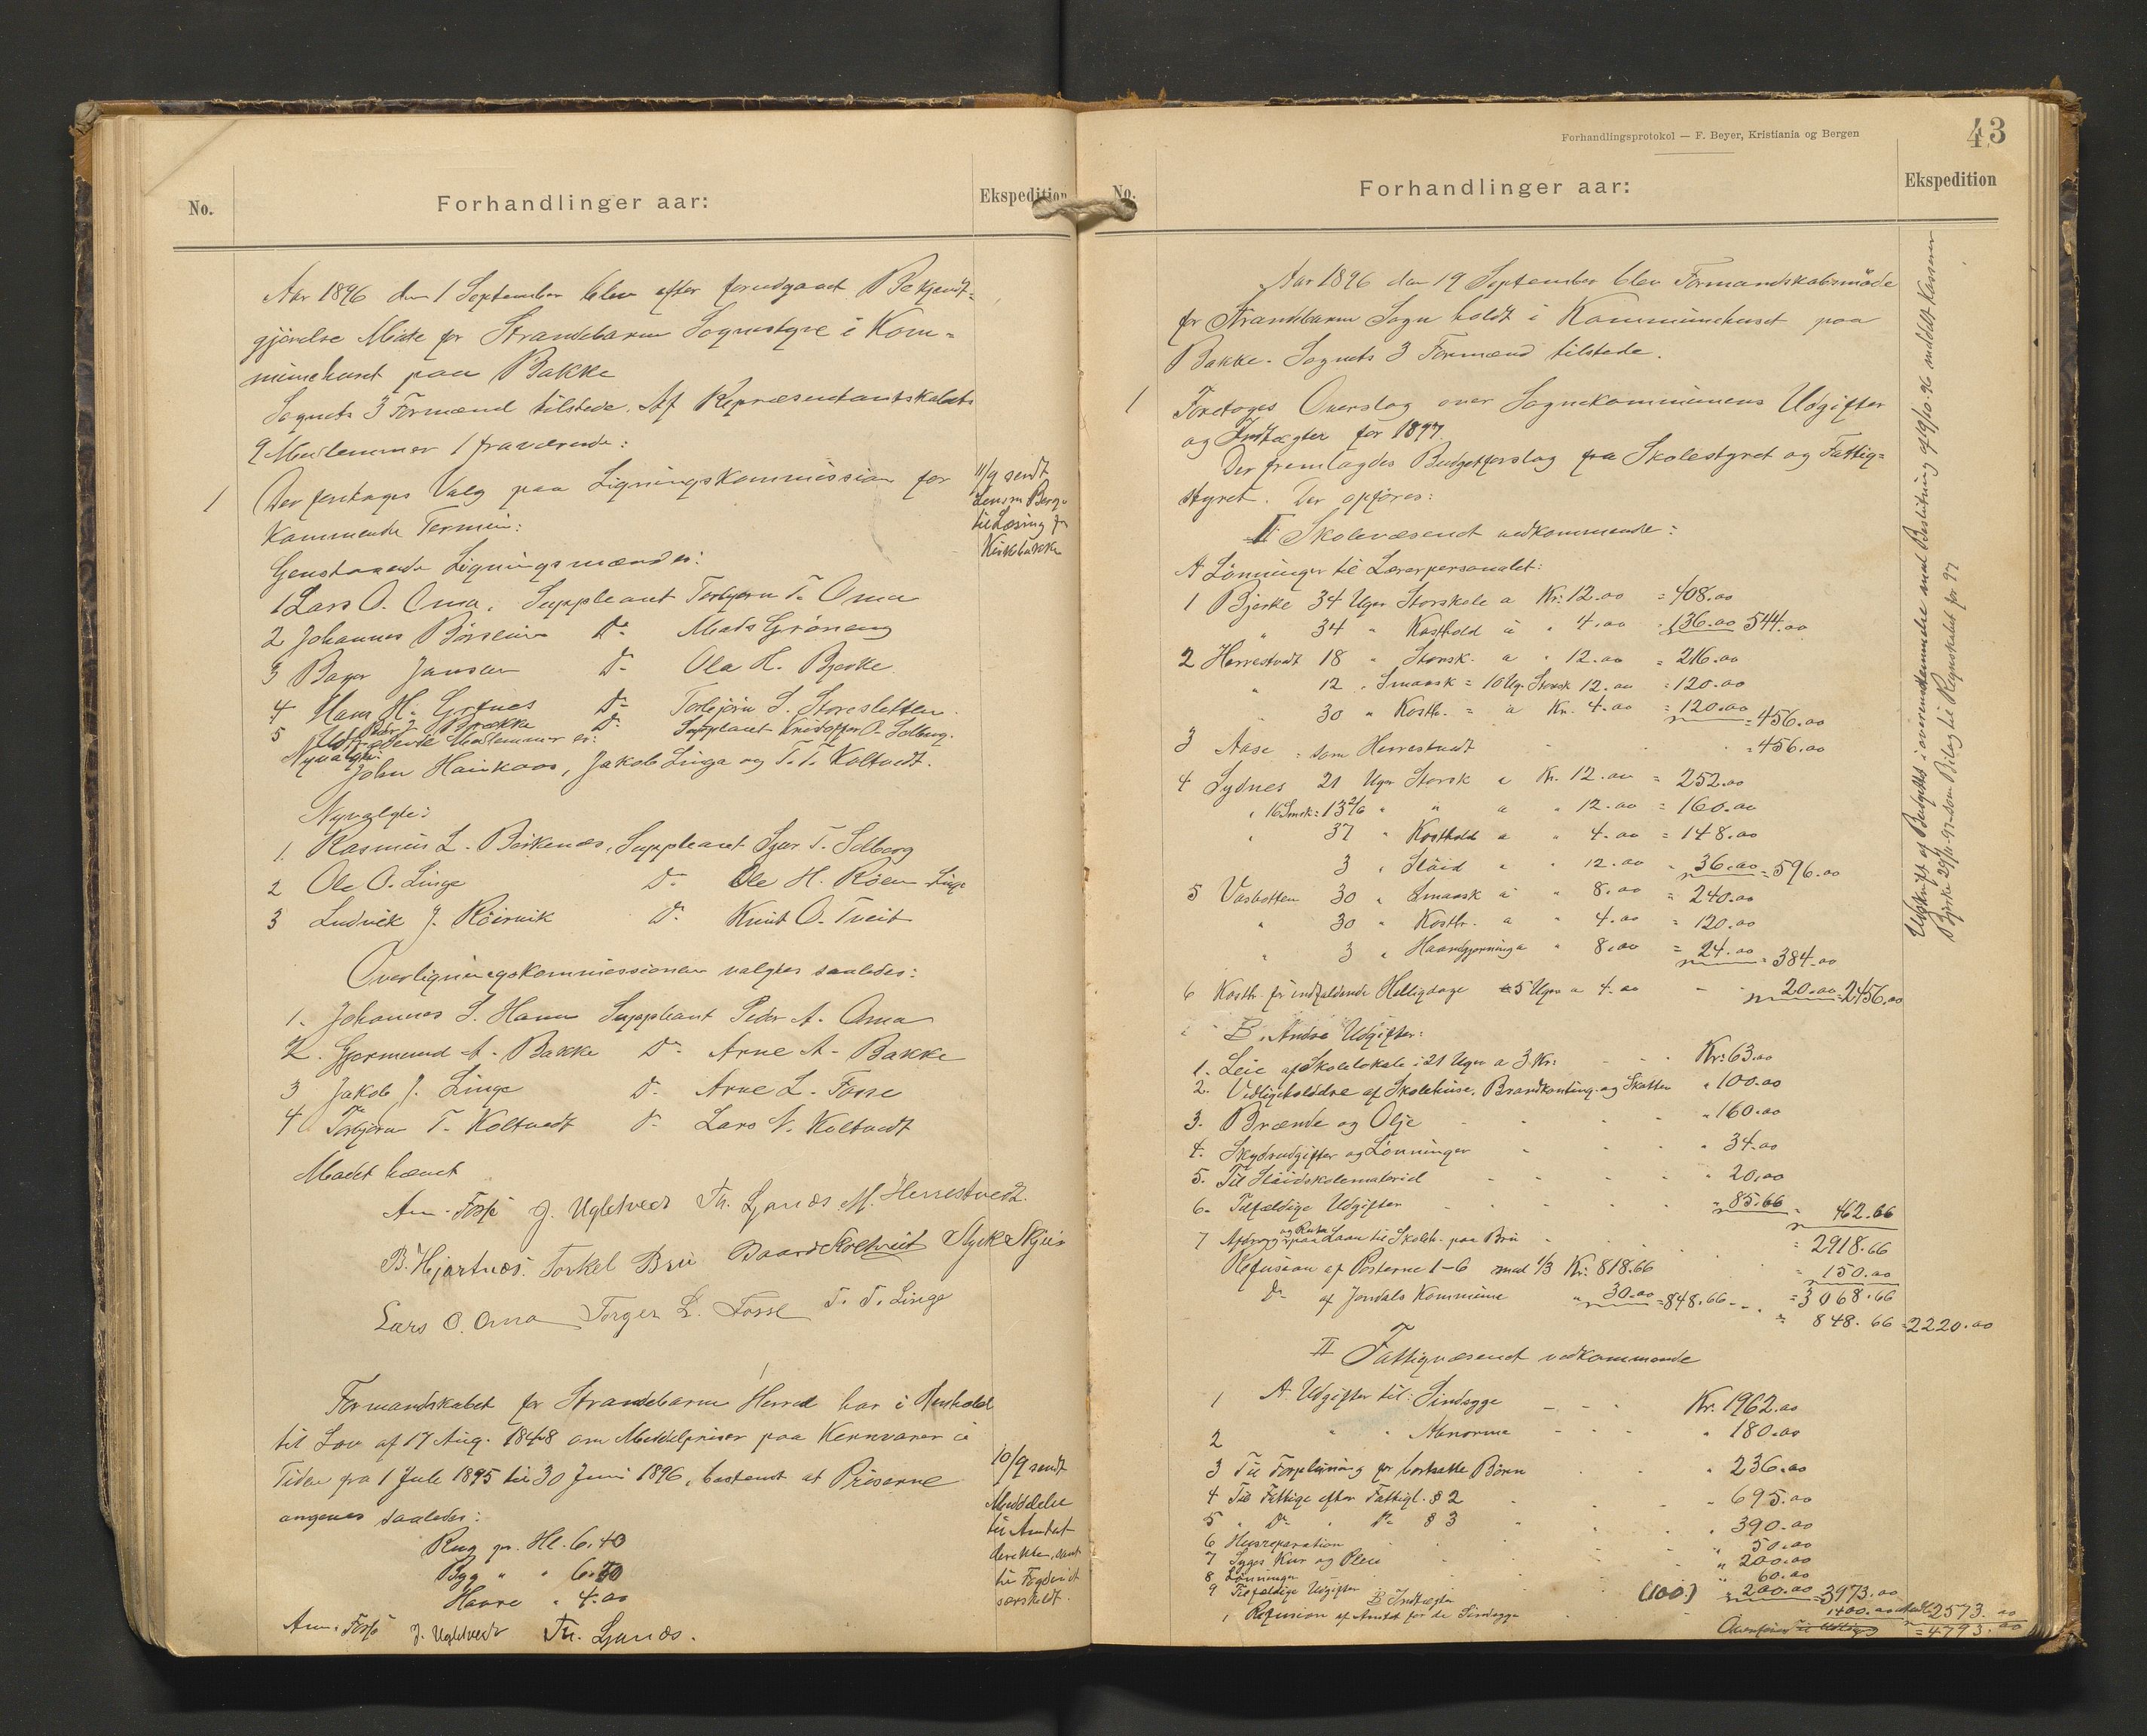 No.
Forhandlinger aar:
Ekspedition
Aar 1896 den 1 September blev efter forudgaaet Bekjendt-
gjörelse Möde for Strandebarm Sognestyre i Kom-
munehuset paa Bakke
Sognets 3 Formænd tilstede. Af Repræsentantskabets
9 Medlemmer 1 fraværende:
1 Der foretages Valg paa Ligningskommission for
kommende Termin:
11/9 sendt
Lensm Berge
til Læsning for
Kirkbakke
Genstaaende Ligningsmænd er:
1 Lars O. Oma. Suppleant Torbjørn T. Oma
2 Johannes Börsheim Do Mads Grøneng
3 Bager Jansen Do Ola H. Bjerke
4 Hans H. Do Torbjörn S. Storesletten
5 Brække Do Suppleant Kristoffer O. Solberg.
Udtrædende Medlemmer er:
John Haukaas, Jakob Linga og T. T. Koltvedt.
Nyvalgte:
1. Rasmus L. Birkenæs, Suppleant Sjur T. Solberg
2 Ole O. Linge Do Ole H. Röen Linge
3 Ludvik J. Röirvik Do Knut O. Tveit
Overligningskommissionen valgtes saaledes:
1. Johannes S. Haun Suppleant Peder A. Oma
2. Gjermund A. Bakke Do Arne A. Bakke
3 Jakob J. Linge Do Arne L. Fosse
4 Torbjörn T. Koltvedt Do Lars N. Koltvedt
Mødet hævet
Am. Fosse J. Ugletveit Th. Ljanæs M. Herrestvedt.
B. Hjartnæs. Torkel Bru Baard Koltveit Styrk Skjeie
Lars O. Oma Torger L. Fosse T. T. Linge
Formandskabet for Strandebarm Herred har i Henhold
til Lov af 17 Aug. 1848 om Middelpriser paa Kornvarer i
Tiden fra 1 Juli 1895 til 30 Juni 1896, bestemt at Priserne
angives saaledes:
10/9 sendt
Meddelelse
til Amtet
direkte, samt
til Fogderiet
særskildt.
Rug pr. Hl. 6.40
Byg " " 6.40
Havre " 4.00
Am. Fosse J. Ugletveit Th. Ljanæs.
Forhandlingsprotokol — F. Beyer, Kristiania og Bergen
43
No.
Forhandlinger aar:
Ekspedition
Aar 1896 den 19 September blev Formandskabsmöde
for Strandebarm Sogn holdt i Kommunehuset paa
Bakke. Sognets 3 Formænd tilstede.
1 Foretoges Overslag over Sognekommunens Udgifter
og Indtægter for 1897.
Der fremlagdes Budgetforslag fra Skolestyret og Fattig-
styret. Der opföres:
I Skolevæsenet vedkommende:
A Lönninger til Lærerpersonalet:
1 Bjerke 34 Uger Storskole a Kr. 12.00 = 408.00
" 34 " Kosthold a " 4.00 = 136.00 544.00
2 Herrestvedt 18 " Storsk. a " 12.00 = 216.00
" 12 " Smaask = 10 Ug. Storsk 12.00 = 120.00
30 " Kosth. = a Kr. 4.00 = 120.00 = 456.00
3 Aase = som Herrestvedt = 456.00
4 Sydnes 21 Uger Storsk a Kr. 12.00 = 252.00
" 16 Smsk = 13 2/6 " " a " 12.00 = 160.00
" 37 " Kosthold a " 4.00 = 148.00
3 " Slöid a " 12.00 " 36.00 = 596.00
5 Vasbotten 30 " Smaask a " 8.00 = 240.00
" 30 " Kosth. a " 4.00 = 120.00
" 3 " Haandgjerning a " 8.00 = 24.00 = 384.00
6 Kosth. for indfaldende Helligdage 5 Uger a 4.00 20.00 = 2456.00
B. Andre Udgifter:
1. Leie af Skolelokale i 21 Uger a 3 Kr: Kr: 63.00
2. Vedligeholdelse af Skolehuse, Brandkonting. og Skatter " 100.00
3. Brænde og Olje " 160.00
4. Skydsudgifter og Lönninger " 34.00
5. Til Slöidskolemateriel " 20.00
6. Tilfældige Udgifter " 85.66 = 462.66
= 2918.66
7 Afdrag og Rente paa Laan til Skoleh. paa Bru = 150.00
Refusion af Posterne 1-6 med 1/3 Kr: 818.66 = 3068.66
Do af Jondals Kommune " 30.00 = 848.66
= 848.66 = 2220.00
II Fattigvæsenet vedkommende
A. Udgifter til:
1 Sindsyge Kr. 1962.00
2 " " Abnorme " 180.00
3 Til Forpleining for bortsatte Börn " 236.00
4 Til Fattige efter Fattigl. § 2 " 695.00
5 " Do " Do § 3 " 390.00
6 Husreparation " 50.00
7 Syges Kur og Pleie " 200.00
8 Lönninger " 60.00
9 Tilfældige Udgifter (100.) " 200.00 = 3973.00
B Indtægter
1 Refusion af Amtet for de Sindsyge 1400.00 2573.00
Overföres = 4793.00
Udskrift af Budgettet i overensstemmelse med Beslutning af 9/10.96 meddelt Kasserer
Bjerke 29/11-97 som Bilag til Regnskabet for 97